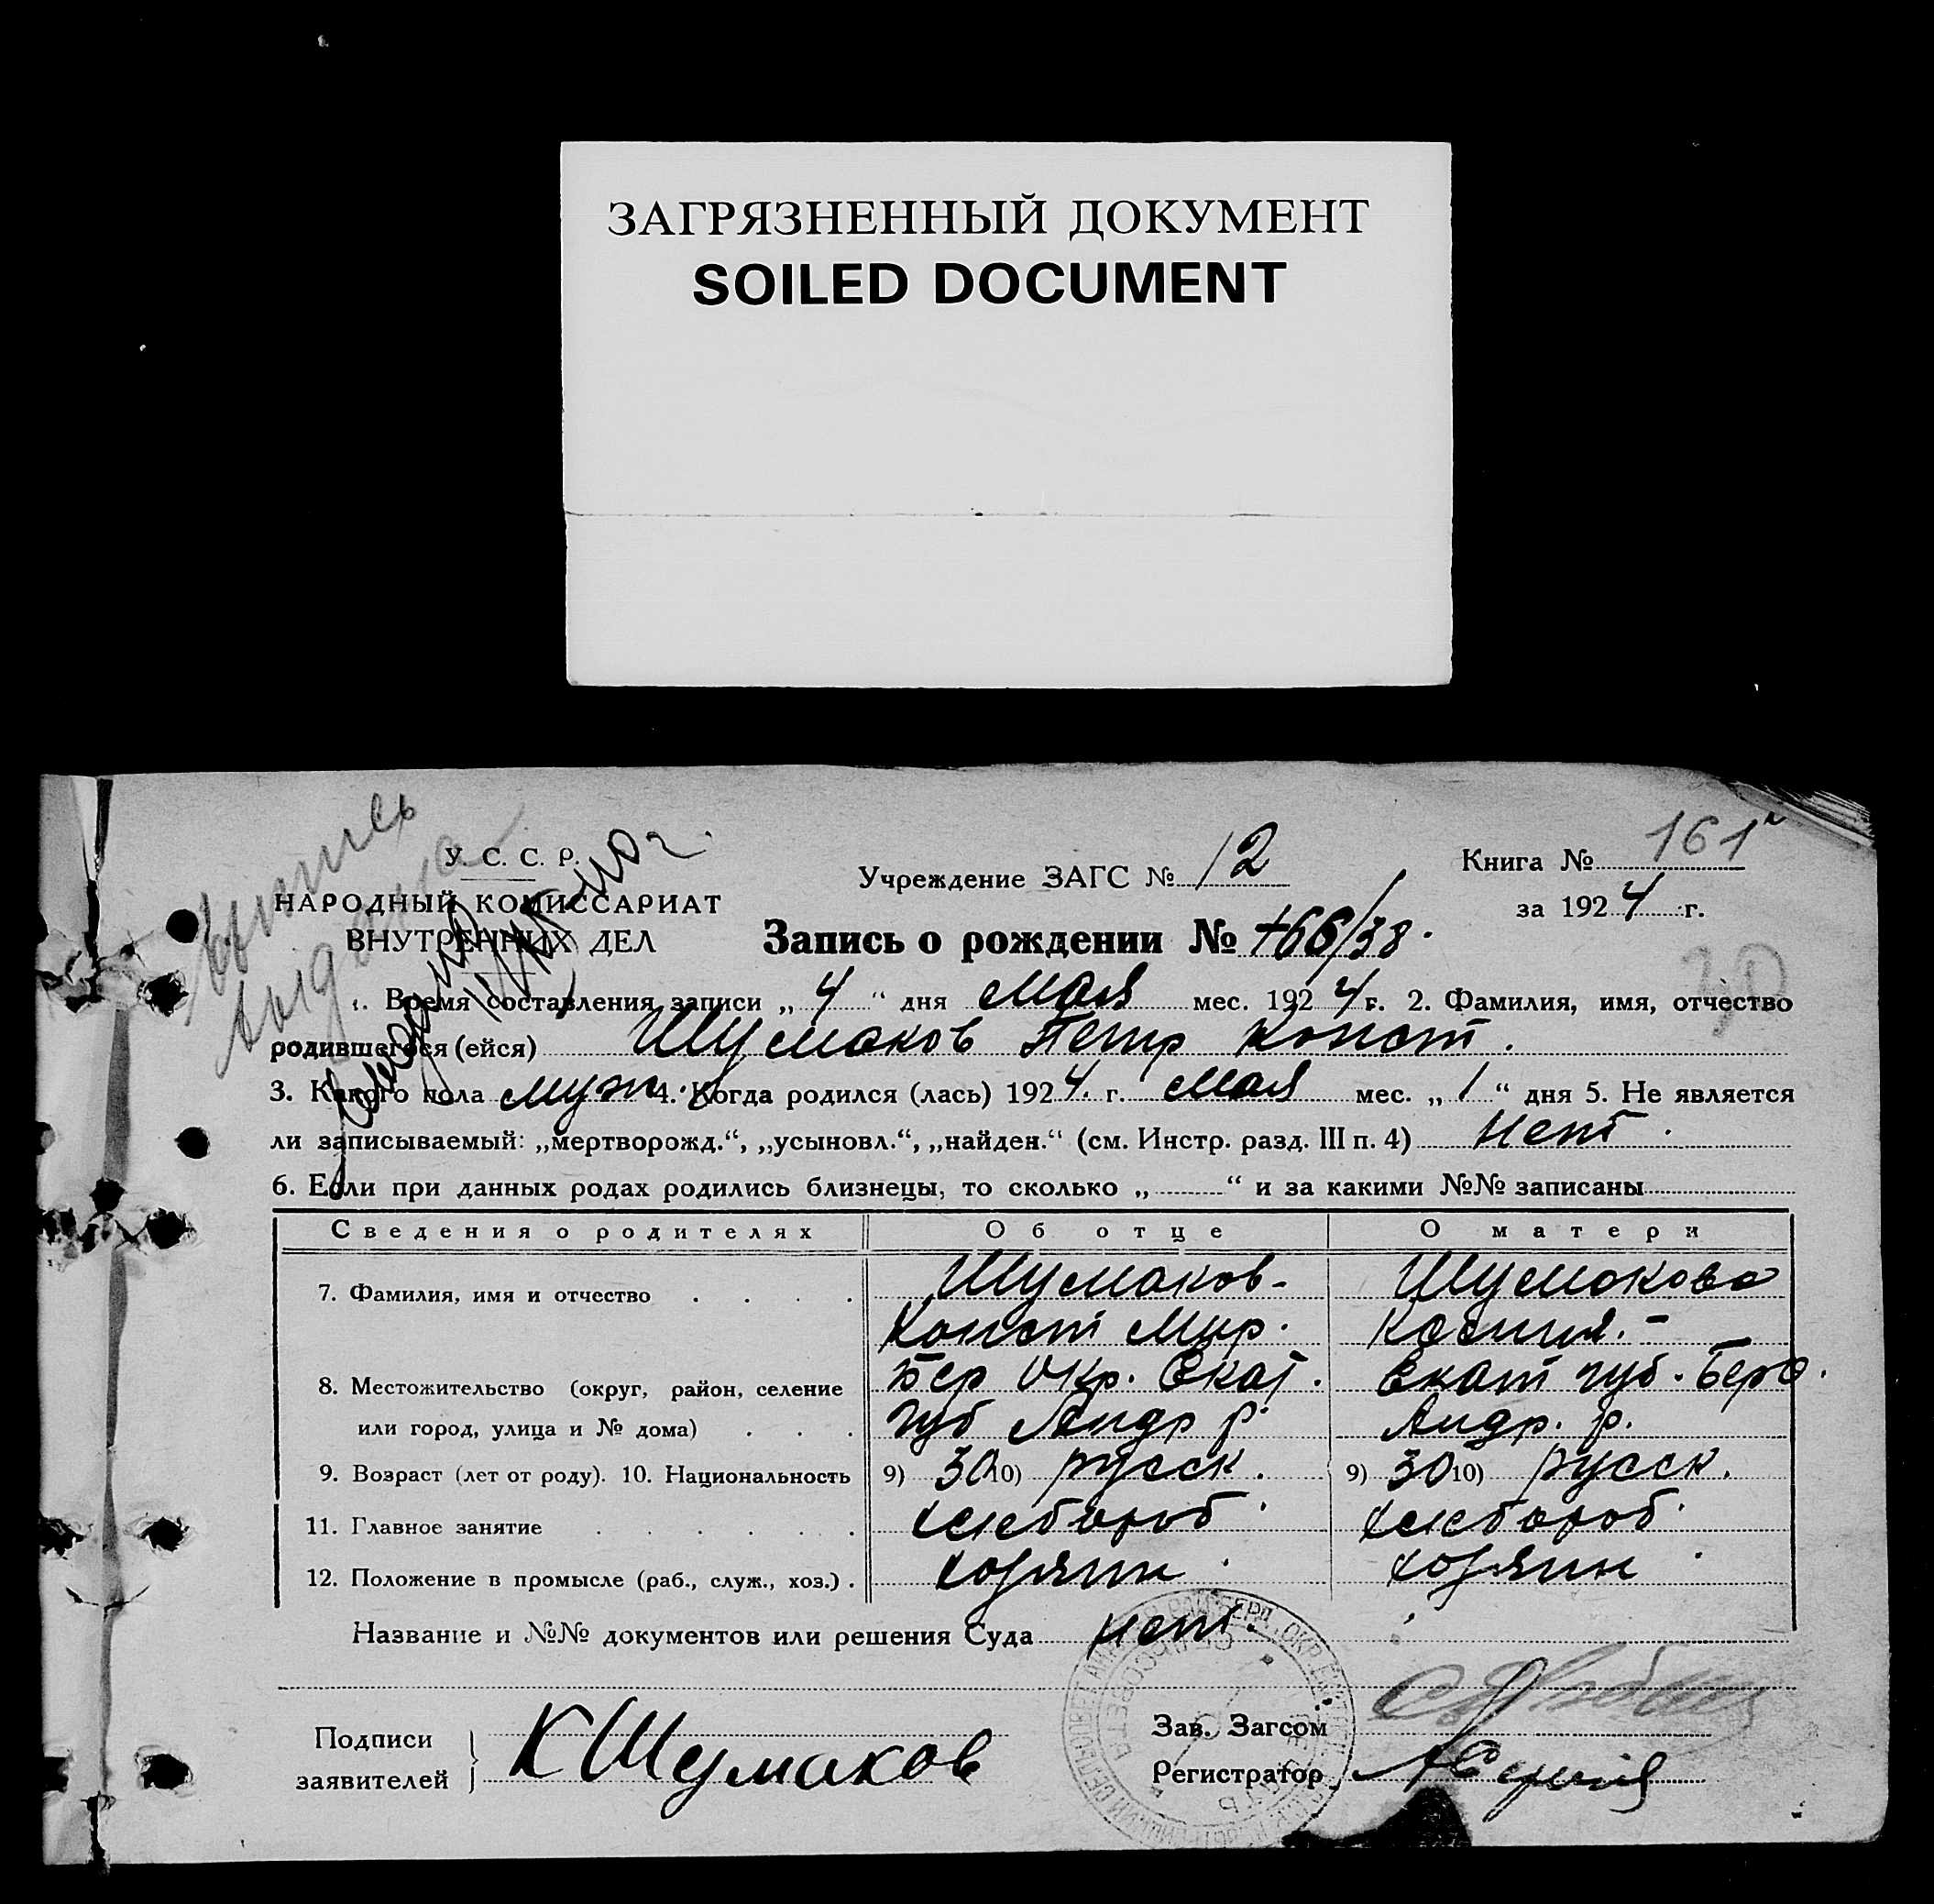 ЗАГРЯЗНЕННЫЙ ДОКУМЕНТ
SOILED DOCUMENT
У. С. С. Р.
НАРОДНЫЙ КОМИССАРИАТ
ВНУТРЕННИХ ДЕЛ
выпись
выдана
Учреждение ЗАГС № 12
Книга № 161
за 1924 г.
Запись о рождении № 166/38.
1. Время составления записи „ 4 “ дня мая мес. 1924 г. 2. Фамилия, имя, отчество
родившегося (ейся) Шумаков Петр Конст.
3. Какого пола муж. 4. Когда родился (лась) 1924. г. мая мес. „ 1 “ дня 5. Не является
ли записываемый: „мертворожд.“, „усыновл.“, „найден.“ (см. Инстр. разд. III п. 4) Нет.
6. Если при данных родах родились близнецы, то сколько „ “ и за какими №№ записаны
Сведения о родителях Об отце О матери
7. Фамилия, имя и отчество Шумаков- Шумакова
Конст Мир. Ксения.-
8. Местожительство (округ, район, селение Бер Окр. Екат. Екат губ. Берд.
или город, улица и № дома) губ Андр р. Андр. р.
9. Возраст (лет от роду). 10. Национальность 9) 30 10) русск. 9) 30 10) русск.
11. Главное занятие хлебороб. хлебороб.
12. Положение в промысле (раб., служ., хоз.) хозяин. хозяин.
Название и №№ документов или решения Суда нет.
Подписи
заявителей } К Шумаков
Зав. Загсом
Регистратор